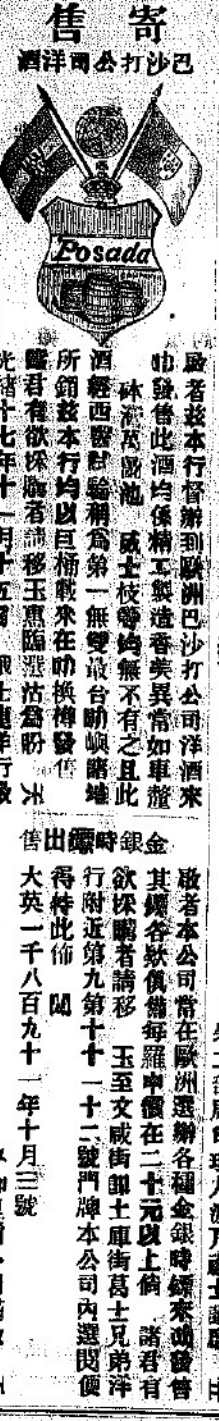 寄售
巴沙打公司洋酒
Posada
啟者茲本行督辦到歐洲巴沙打公司洋酒來
叻發售此酒均係精工製造香美異常如車釐
砵酒萬國池 威士枝等均無不有之且此
酒經西醫試驗稱為第一無雙最合叻嶼諸埠
所銷茲本行均以巨桶載來在叻換樽發售
諸君有欲採購者請移玉惠臨選沽為盼 天
光緒十七年十一月十五
金銀時鏢出售
啟者本公司常在歐洲選辦各種金銀時鏢來叻發售
其鏢各欵俱備每羅申價在二十元以上倘 諸君有
欲採購者請移 玉至文咸街即土庫街葛士兄弟洋
行附近第九第十十一十二號門牌本公司內選閱便
得特此佈 聞
大英一千八百九十一年十月三號